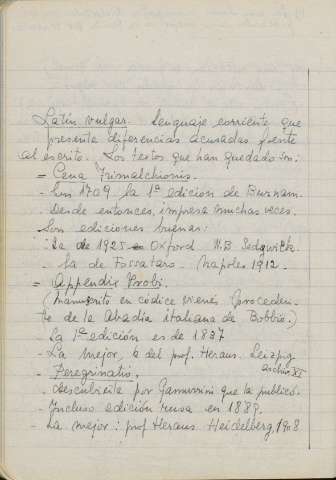 Latín vulgar. Lenguaje corriente que
presenta diferencias acusadas frente
al escrito. Los textos que han quedado son:
= Cena Trimalchionis.
- En 1709 la 1ª edición de Burnam.
- Desde entonces, impresa muchas veces.
Son ediciones buenas:
- La de 1925 - Oxford W.B. Sedgwick.
- La de Fossataro. - Napoles 1912.
= Appendix Probi.
Manuscrito en códice vienés (proceden-
te de la Abadía italiana de Bobbio.)
La 1ª edición es de 1837
- La mejor, la del prof. Heraus. Leizpig
- Peregrinatio,
- descubierta por Gamurrini que la publicó.
- Incluso edición rusa en 1889.
- La mejor: prof Heraus. Heidelberg, 1908